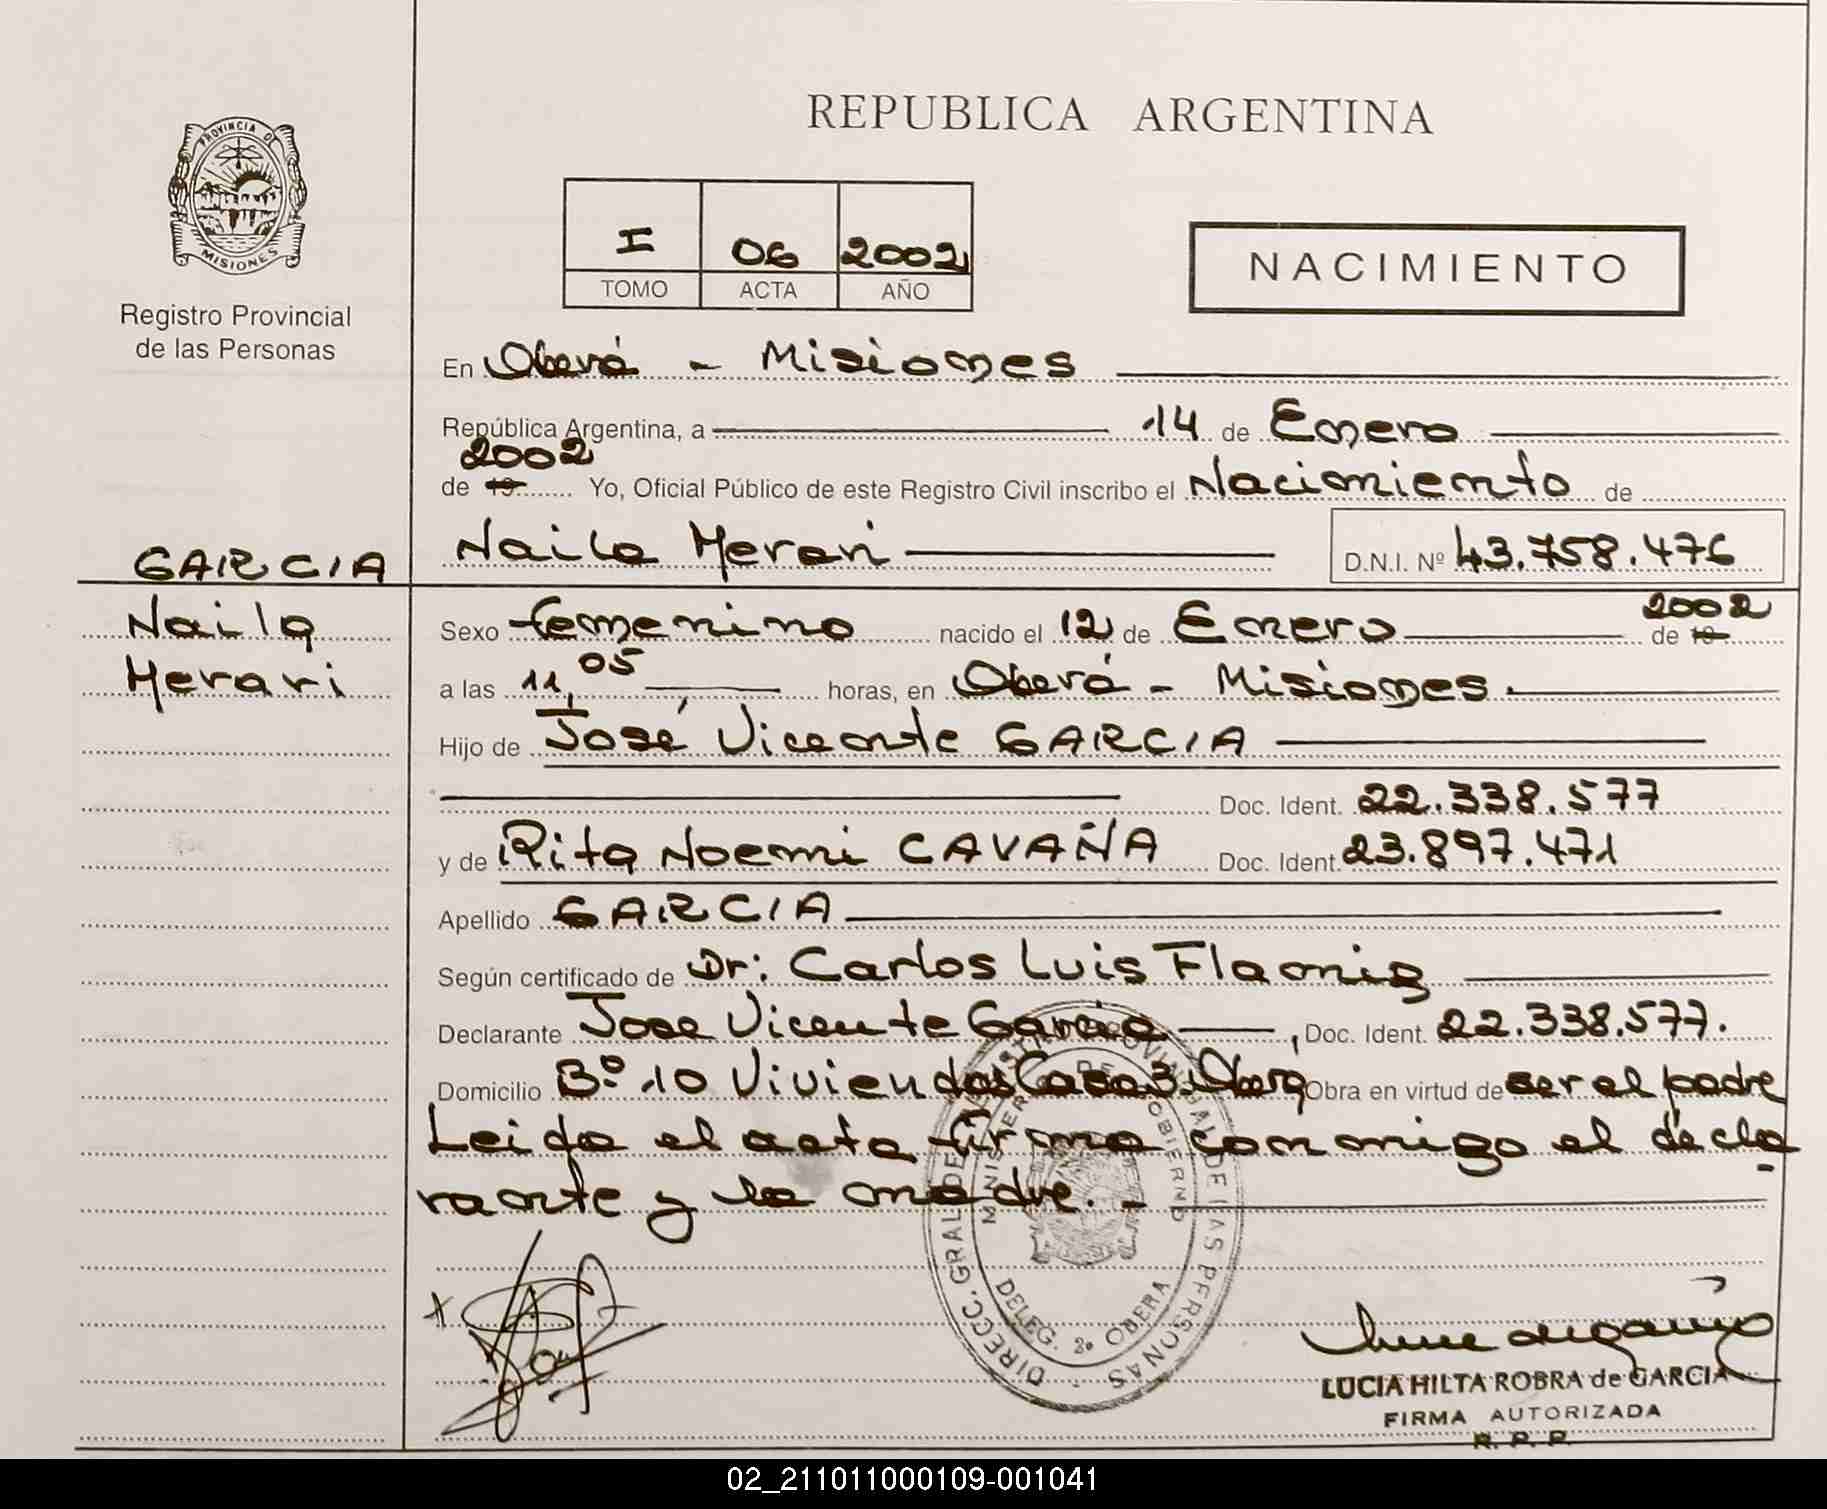 REPUBLICA ARGENTINA
PROVINCIA DE
MISIONES
Registro Provincial
de las Personas
I 06 2002
TOMO ACTA AÑO
NACIMIENTO
En Oberá - Misiones
República Argentina, a 14 de Enero
2002
de 19 Yo, Oficial Público de este Registro Civil inscribo el Nacimiento de
Naila Merari D.N.I. Nº 43.758.476
GARCIA
Naila
Merari
Sexo femenino nacido el 12 de Enero de 19 2002
a las 11,05 horas, en Oberá - Misiones.
Hijo de José Vicente GARCIA
Doc. Ident. 22.338.577
y de Rita Noemi CAVAÑA Doc. Ident. 23.897.471
Apellido GARCIA
Según certificado de Dr: Carlos Luis
Declarante Jose Vicente Garcia, Doc. Ident. 22.338.577.
Domicilio Bº 10 Viviendas Casa 3, Oberá Obra en virtud de ser el padre
Leida el acta firma conmigo el decla
rante y la madre.-
DIRECC. GRAL DE REGISTRO PROVINCIAL DE LAS PERSONAS
MINISTERIO DE GOBIERNO
DELEG. 2º OBERA
LUCIA HILTA ROBRA de GARCIA
FIRMA AUTORIZADA
R. P. P.
02_211011000109-001041